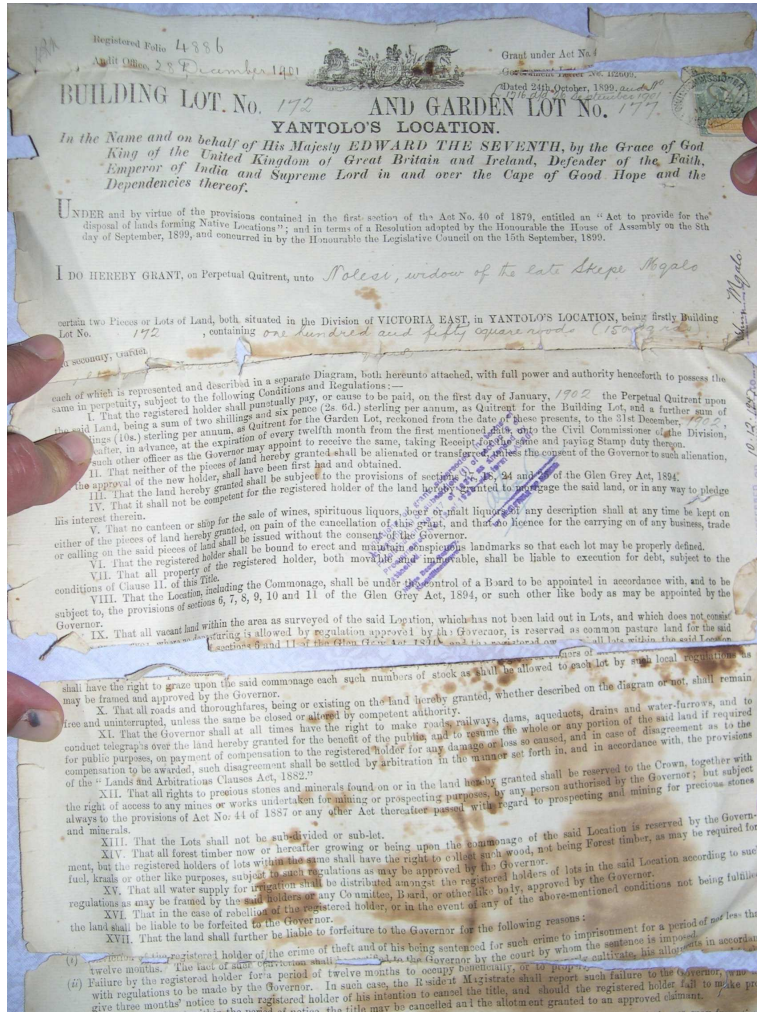 Registered Folio 4886
Audit Office, 28 December 1901
Grant under Act No. 4
No. B2609.
Dated 24th October, 1899, and No
September 1901
BUILDING LOT. No. 172 AND GARDEN LOT No. 177.
YANTOLO'S LOCATION.
In the Name and on behalf of His Majesty EDWARD THE SEVENTH, by the Grace of God
King of the United Kingdom of Great Britain and Ireland, Defender of the Faith,
Emperor of India and Supreme Lord in and over the Cape of Good Hope and the
Dependencies thereof.
UNDER and by virtue of the provisions contained in the first section of the Act No. 40 of 1879, entitled an "Act to provide for the
disposal of lands forming Native Locations"; and in terms of a Resolution adopted by the Honourable the House of Assembly on the 8th
day of September, 1899, and concurred in by the Honourable the Legislative Council on the 15th September, 1899.
I DO HEREBY GRANT, on Perpetual Quitrent, unto Nolest, widow of the late Skepe Mgalo
certain two Pieces or Lots of Land, both situated in the Division of VICTORIA EAST, in YANTOLO'S LOCATION, being firstly Building
Lot No. 172, containing one hundred and fifty square roods (150
secondly, Garden
each of which is represented and described in a separate Diagram, both hereunto attached, with full power and authority henceforth to possess the
same in perpetuity, subject to the following Conditions and Regulations:—
I. That the registered holder shall punctually pay, or cause to be paid, on the first day of January, 1902 the Perpetual Quitrent upon
the said Land, being a sum of two shillings and six pence (2s. 6d.) sterling per annum, as Quitrent for the Building Lot, and a further sum of
(10s.) sterling per annum, as Quitrent for the Garden Lot, reckoned from the date of these presents, to the 31st December, 1902,
after, in advance, at the expiration of every twelfth month from the first mentioned date, unto the Civil Commissioner of the Division,
such other officer as the Governor may appoint to receive the same, taking Receipt for the same and paying Stamp duty thereon.
II. That neither of the pieces of land hereby granted shall be alienated or transferred unless the consent of the Governor to such alienation,
the approval of the new holder, shall have been first had and obtained.
III. That the land hereby granted shall be subject to the provisions of sections 24 and of the Glen Grey Act, 1894.
IV. That it shall not be competent for the registered holder of the land hereby granted to mortgage the said land, or in any way to pledge
his interest therein.
V. That no canteen or shop for the sale of wines, spirituous liquors, beer or malt liquors of any description shall at any time be kept on
either of the pieces of land hereby granted, on pain of the cancellation of this grant, and that no licence for the carrying on of any business, trade
or calling on the said pieces of land shall be issued without the consent of the Governor.
VI. That the registered holder shall be bound to erect and maintain conspicuous landmarks so that each lot may be properly defined.
VII. That all property of the registered holder, both movable and immovable, shall be liable to execution for debt, subject to the
conditions of Clause II. of this Title.
VIII. That the Location, including the Commonage, shall be under the control of a Board to be appointed in accordance with, and to be
subject to, the provisions of sections 6, 7, 8, 9, 10 and 11 of the Glen Grey Act, 1894, or such other like body as may be appointed by the
Governor.
IX. That all vacant land within the area as surveyed of the said Location, which has not been laid out in Lots, and which does not consist
is allowed by regulation approved by the Governor, is reserved as common pasture land for the said
shall have the right to graze upon the said commonage each such numbers of stock as shall be allowed to each lot by such local regulations as
may be framed and approved by the Governor.
X. That all roads and thoroughfares, being or existing on the land hereby granted, whether described on the diagram or not, shall remain
free and uninterrupted, unless the same be closed or altered by competent authority.
XI. That the Governor shall at all times have the right to make roads, railways, dams, aqueducts, drains and water-furrows, and to
conduct telegraphs over the land hereby granted for the benefit of the public, and to resume the whole or any portion of the said land if required
for public purposes, on payment of compensation to the registered holder for any damage or loss so caused, and in case of disagreement as to the
compensation to be awarded, such disagreement shall be settled by arbitration in the manner set forth in, and in accordance with, the provisions
of the "Lands and Arbitrations Clauses Act, 1882."
XII. That all rights to precious stones and minerals found on or in the land hereby granted shall be reserved to the Crown, together with
the right of access to any mines or works undertaken for mining or prospecting purposes, by any person authorised by the Governor; but subject
always to the provisions of Act No. 44 of 1887 or any other Act thereafter passed with regard to prospecting and mining for precious stones
and minerals.
XIII. That the Lots shall not be sub-divided or sub-let.
XIV. That all forest timber now or hereafter growing or being upon the commonage of the said Location is reserved by the Govern-
ment, but the registered holders of lots within the same shall have the right to collect such wood, not being Forest timber, as may be required for
fuel, kraals or other like purposes, subject regulations as may be approved by the Governor.
XV. That all water supply for irrigation shall be distributed amongst the registered holders of lots in the said Location according to such
regulations as may be framed by the said holders or any Committee, Board, or other like body, approved by the Governor.
XVI. That in the case of rebellion of the registered holder, or in the event of any of the above-mentioned conditions not being fulfilled
the land shall be liable to be forfeited to the Governor.
XVII. That the land shall further be liable to forfeiture to the Governor for the following reasons:
(i) registered holder of the crime of theft and of his being sentenced for such crime to imprisonment for a period of not less than
twelve months. The fact of shall to the Governor by the court by whom the sentence is imposed.
(ii) Failure by the registered holder for a period of twelve months to occupy beneficially, or to cultivate, his allotments in accordan
with regulations to be made by the Governor. In such case, the Resident Magistrate shall report such failure to the Governor, who
give three months' notice to such registered holder of his intention to cancel the title, and should the registered holder fail to make pro
the title may be cancelled and the allotment granted to an approved claimant.